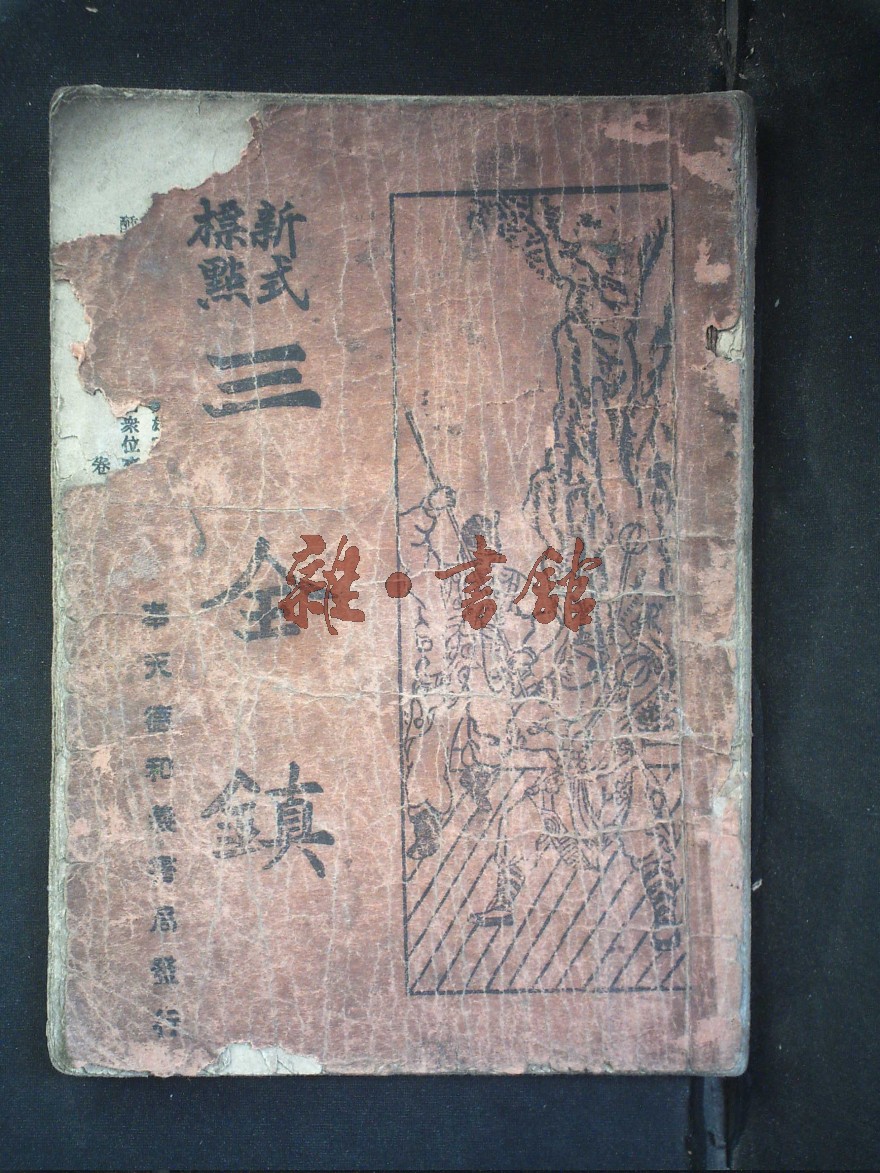 新式
標點
三全鎮
奉天德和義書局發行
衆位
卷
雜·書館